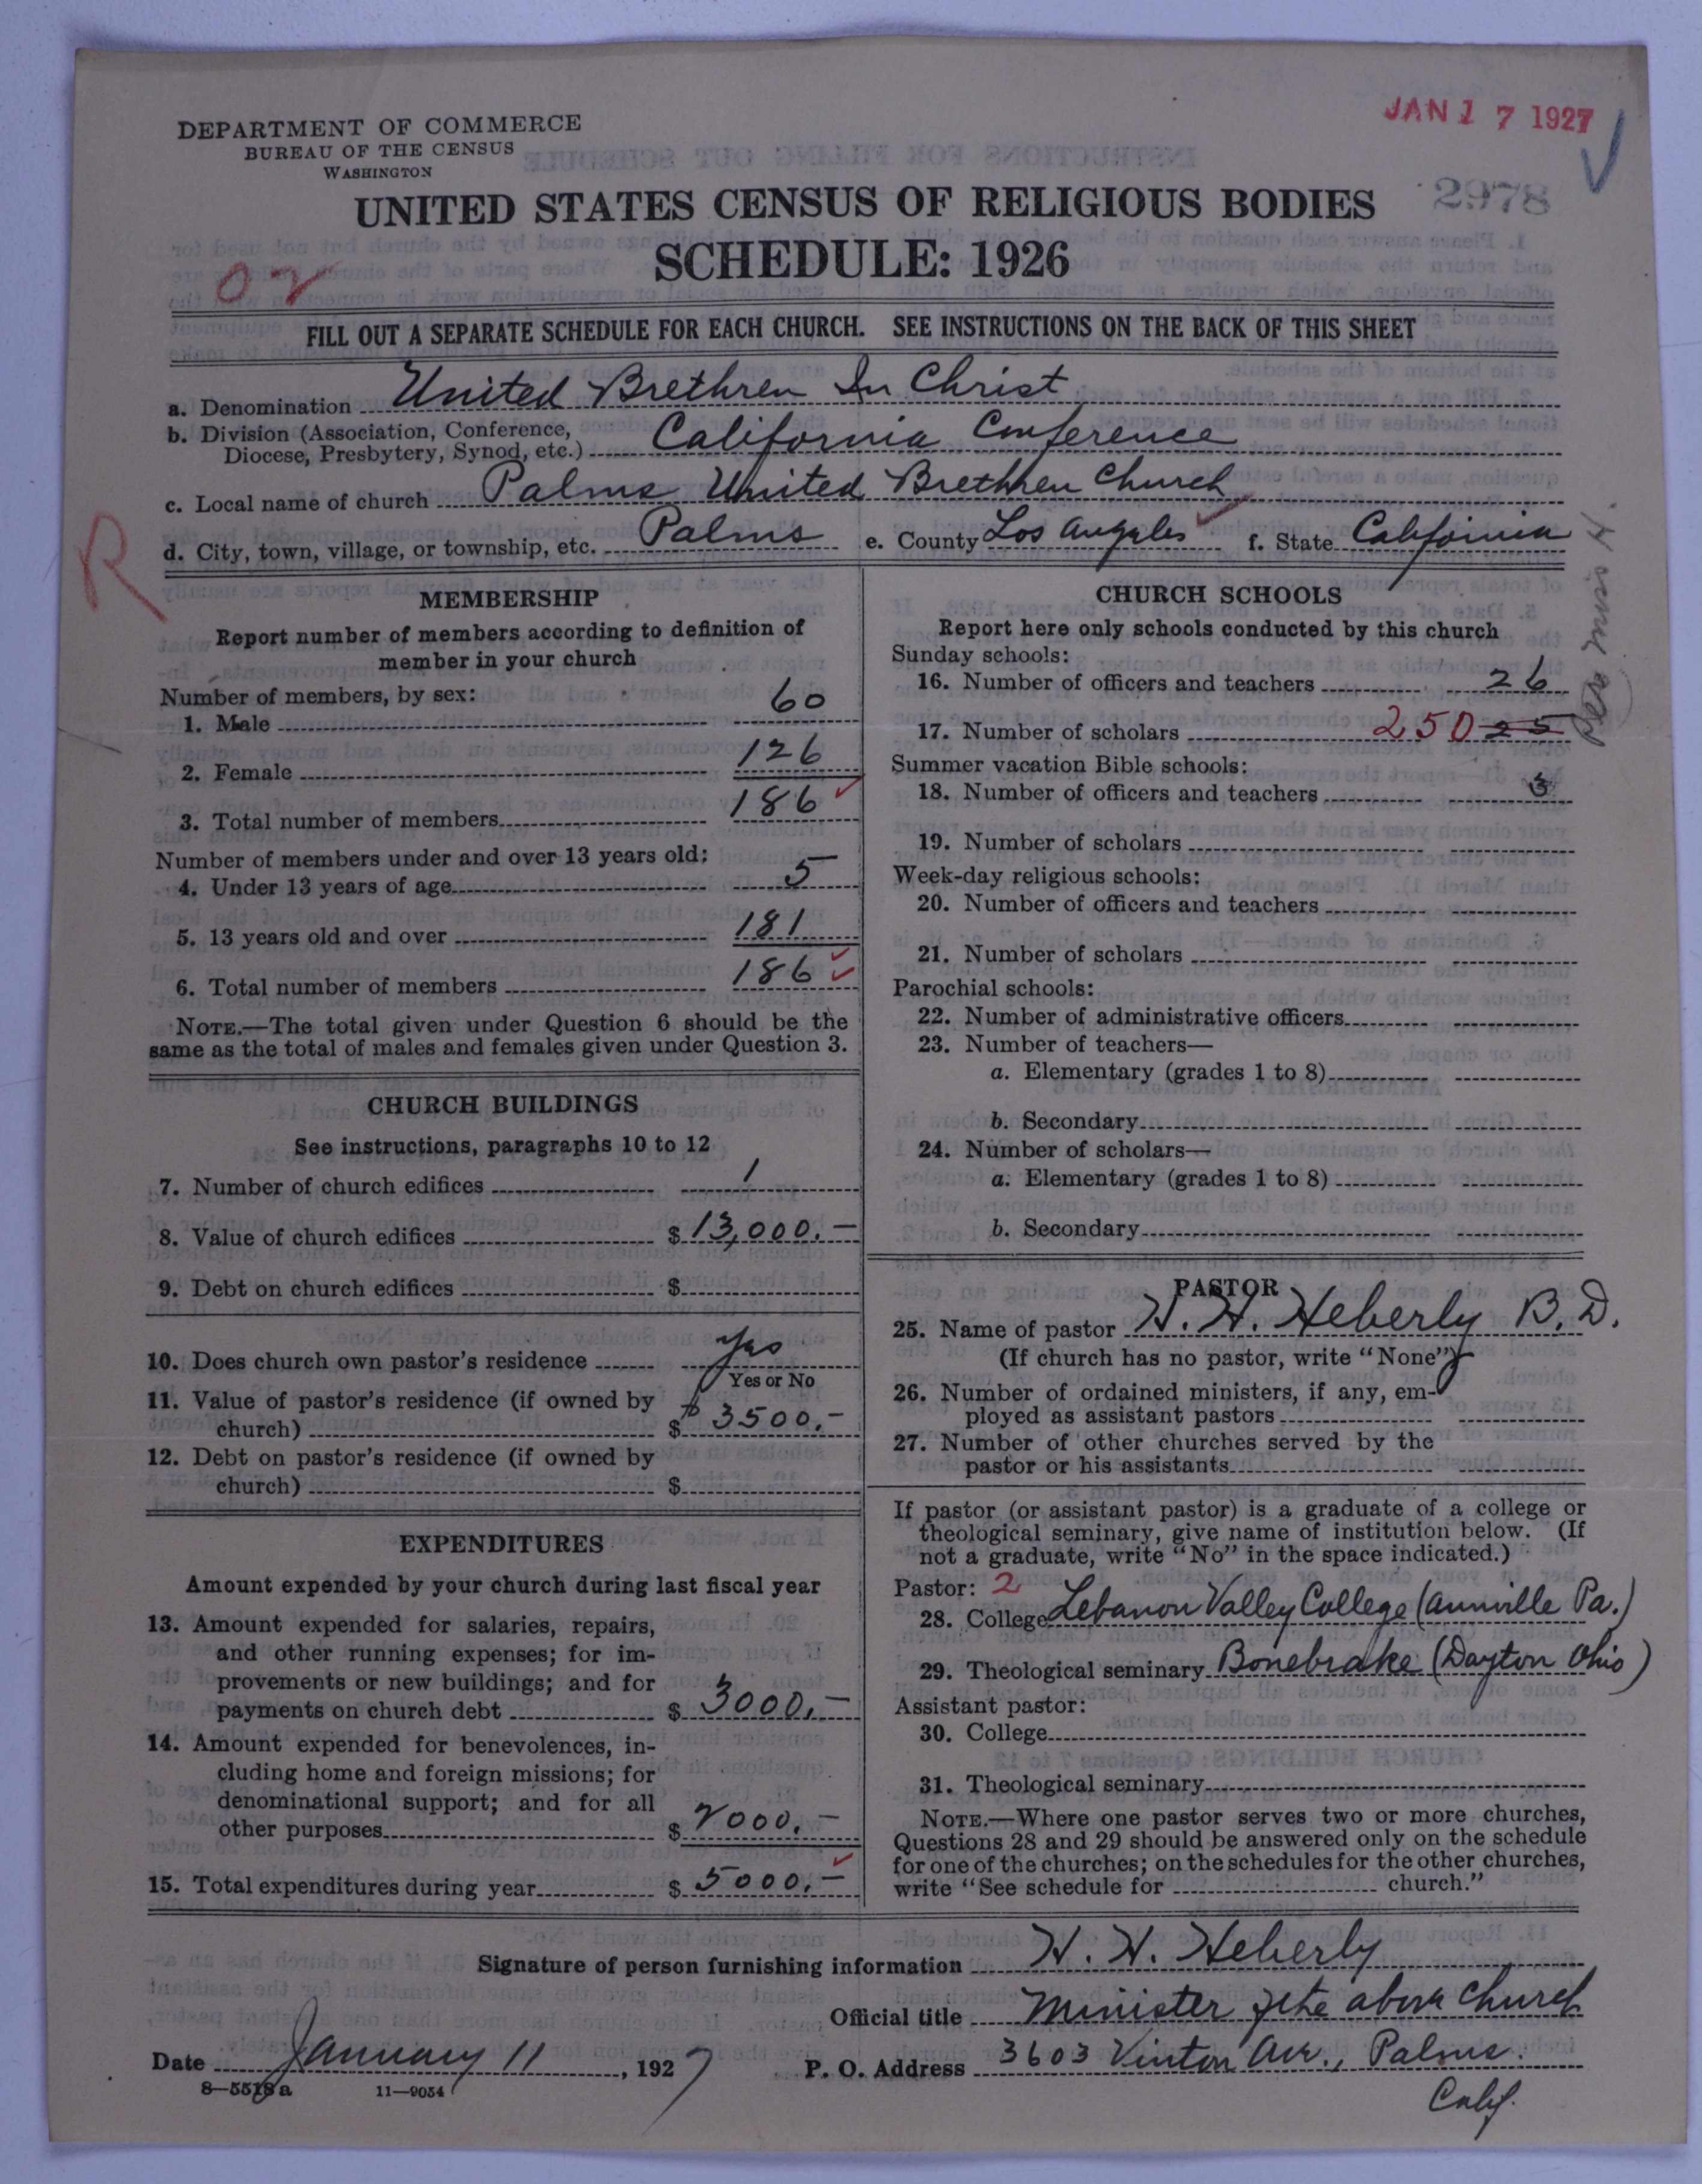 JAN 17 1927
DEPARTMENT OF COMMERCE
BUREAU OF THE CENSUS
WASHINGTON
2978
UNITED STATES CENSUS OF RELIGIOUS BODIES
SCHEDULE: 1926
FILL OUT A SEPARATE SCHEDULE FOR EACH CHURCH. SEE INSTRUCTIONS ON THE BACK OF THIS SHEET
a. Denomination United Brethren In Christ
b. Division (Association, Conference,
Diocese, Presbytery, Synod, etc.) California Conference
c. Local name of church Palms United Brethren Church
d. City, town, village, or township, etc. Palms e. County Los Angeles f. State California
R
MEMBERSHIP
Report number of members according to definition of
member in your church
Number of members, by sex:
1. Male 60
2. Female 126
3. Total number of members 186
Number of members under and over 13 years old:
4. Under 13 years of age 5
5. 13 years old and over 181
6. Total number of members 186
NOTE.—The total given under Question 6 should be the
same as the total of males and females given under Question 3.
CHURCH BUILDINGS
See instructions, paragraphs 10 to 12
7. Number of church edifices 1
8. Value of church edifices $ 13,000.—
9. Debt on church edifices $
10. Does church own pastor's residence Yes
Yes or No
11. Value of pastor's residence (if owned by
church) $ 3500.—
12. Debt on pastor's residence (if owned by
church) $
EXPENDITURES
Amount expended by your church during last fiscal year
13. Amount expended for salaries, repairs,
and other running expenses; for im-
provements or new buildings; and for
payments on church debt $ 3000.—
14. Amount expended for benevolences, in-
cluding home and foreign missions; for
denominational support; and for all
other purposes $ 2000.—
15. Total expenditures during year $ 5000.—
CHURCH SCHOOLS
Report here only schools conducted by this church
Sunday schools:
16. Number of officers and teachers 26
17. Number of scholars 250 25
Summer vacation Bible schools:
18. Number of officers and teachers 3
19. Number of scholars
Week-day religious schools:
20. Number of officers and teachers
21. Number of scholars
Parochial schools:
22. Number of administrative officers
23. Number of teachers—
a. Elementary (grades 1 to 8)
b. Secondary
24. Number of scholars—
a. Elementary (grades 1 to 8)
b. Secondary
PASTOR
25. Name of pastor H. H. Heberly B. D.
(If church has no pastor, write "None")
26. Number of ordained ministers, if any, em-
ployed as assistant pastors
27. Number of other churches served by the
pastor or his assistants
If pastor (or assistant pastor) is a graduate of a college or
theological seminary, give name of institution below. (If
not a graduate, write "No" in the space indicated.)
Pastor: 2
28. College Lebanon Valley College (Annville Pa.)
29. Theological seminary Bonebrake (Dayton Ohio)
Assistant pastor:
30. College
31. Theological seminary
NOTE.—Where one pastor serves two or more churches,
Questions 28 and 29 should be answered only on the schedule
for one of the churches; on the schedules for the other churches,
write "See schedule for church."
Signature of person furnishing information H. H. Heberly
Official title Minister of the above Church
Date January 11, 1927 P. O. Address 3603 Vinton Ave., Palms.
Calif.
8—5518a 11—9034